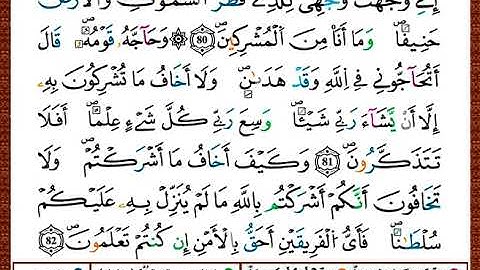 إِنِّے وَجَّهْتُ وَجْهِيَ لِلَّذِے فَطَرَ اَ۬لسَّمَٰوَٰتِ وَالْأَرْضَ
حَنِيفٗاۖ وَمَا أَنَا مِنَ اَ۬لْمُشْرِكِينَۖ 80 وَحَآجَّهُۥ قَوْمُهُۥۖ قَالَ
أَتُحَٰٓجُّونِے فِے اِ۬للَّهِ وَقَدْ هَدَىٰنِۖ وَلَا أَخَافُ مَا تُشْرِكُونَ بِهِۦ
إِلَّا أَنْ يَّشَآءَ رَبِّے شَيْـٔٗاۖ وَسِعَ رَبِّے كُلَّ شَےْءٍ عِلْماًۖ أَفَلَا
تَتَذَكَّرُونَۖ 81 وَكَيْفَ أَخَافُ مَا أَشْرَكْتُمْۖ وَلَا
تَخَافُونَ أَنَّكُمْ أَشْرَكْتُم بِاللَّهِ مَا لَمْ يُنَزِّلْ بِهِۦ عَلَيْكُمْ
سُلْطَٰناٗۖ فَأَيُّ اُ۬لْفَرِيقَيْنِ أَحَقُّ بِالْأَمْنِ إِن كُنتُمْ تَعْلَمُونَۖ 82